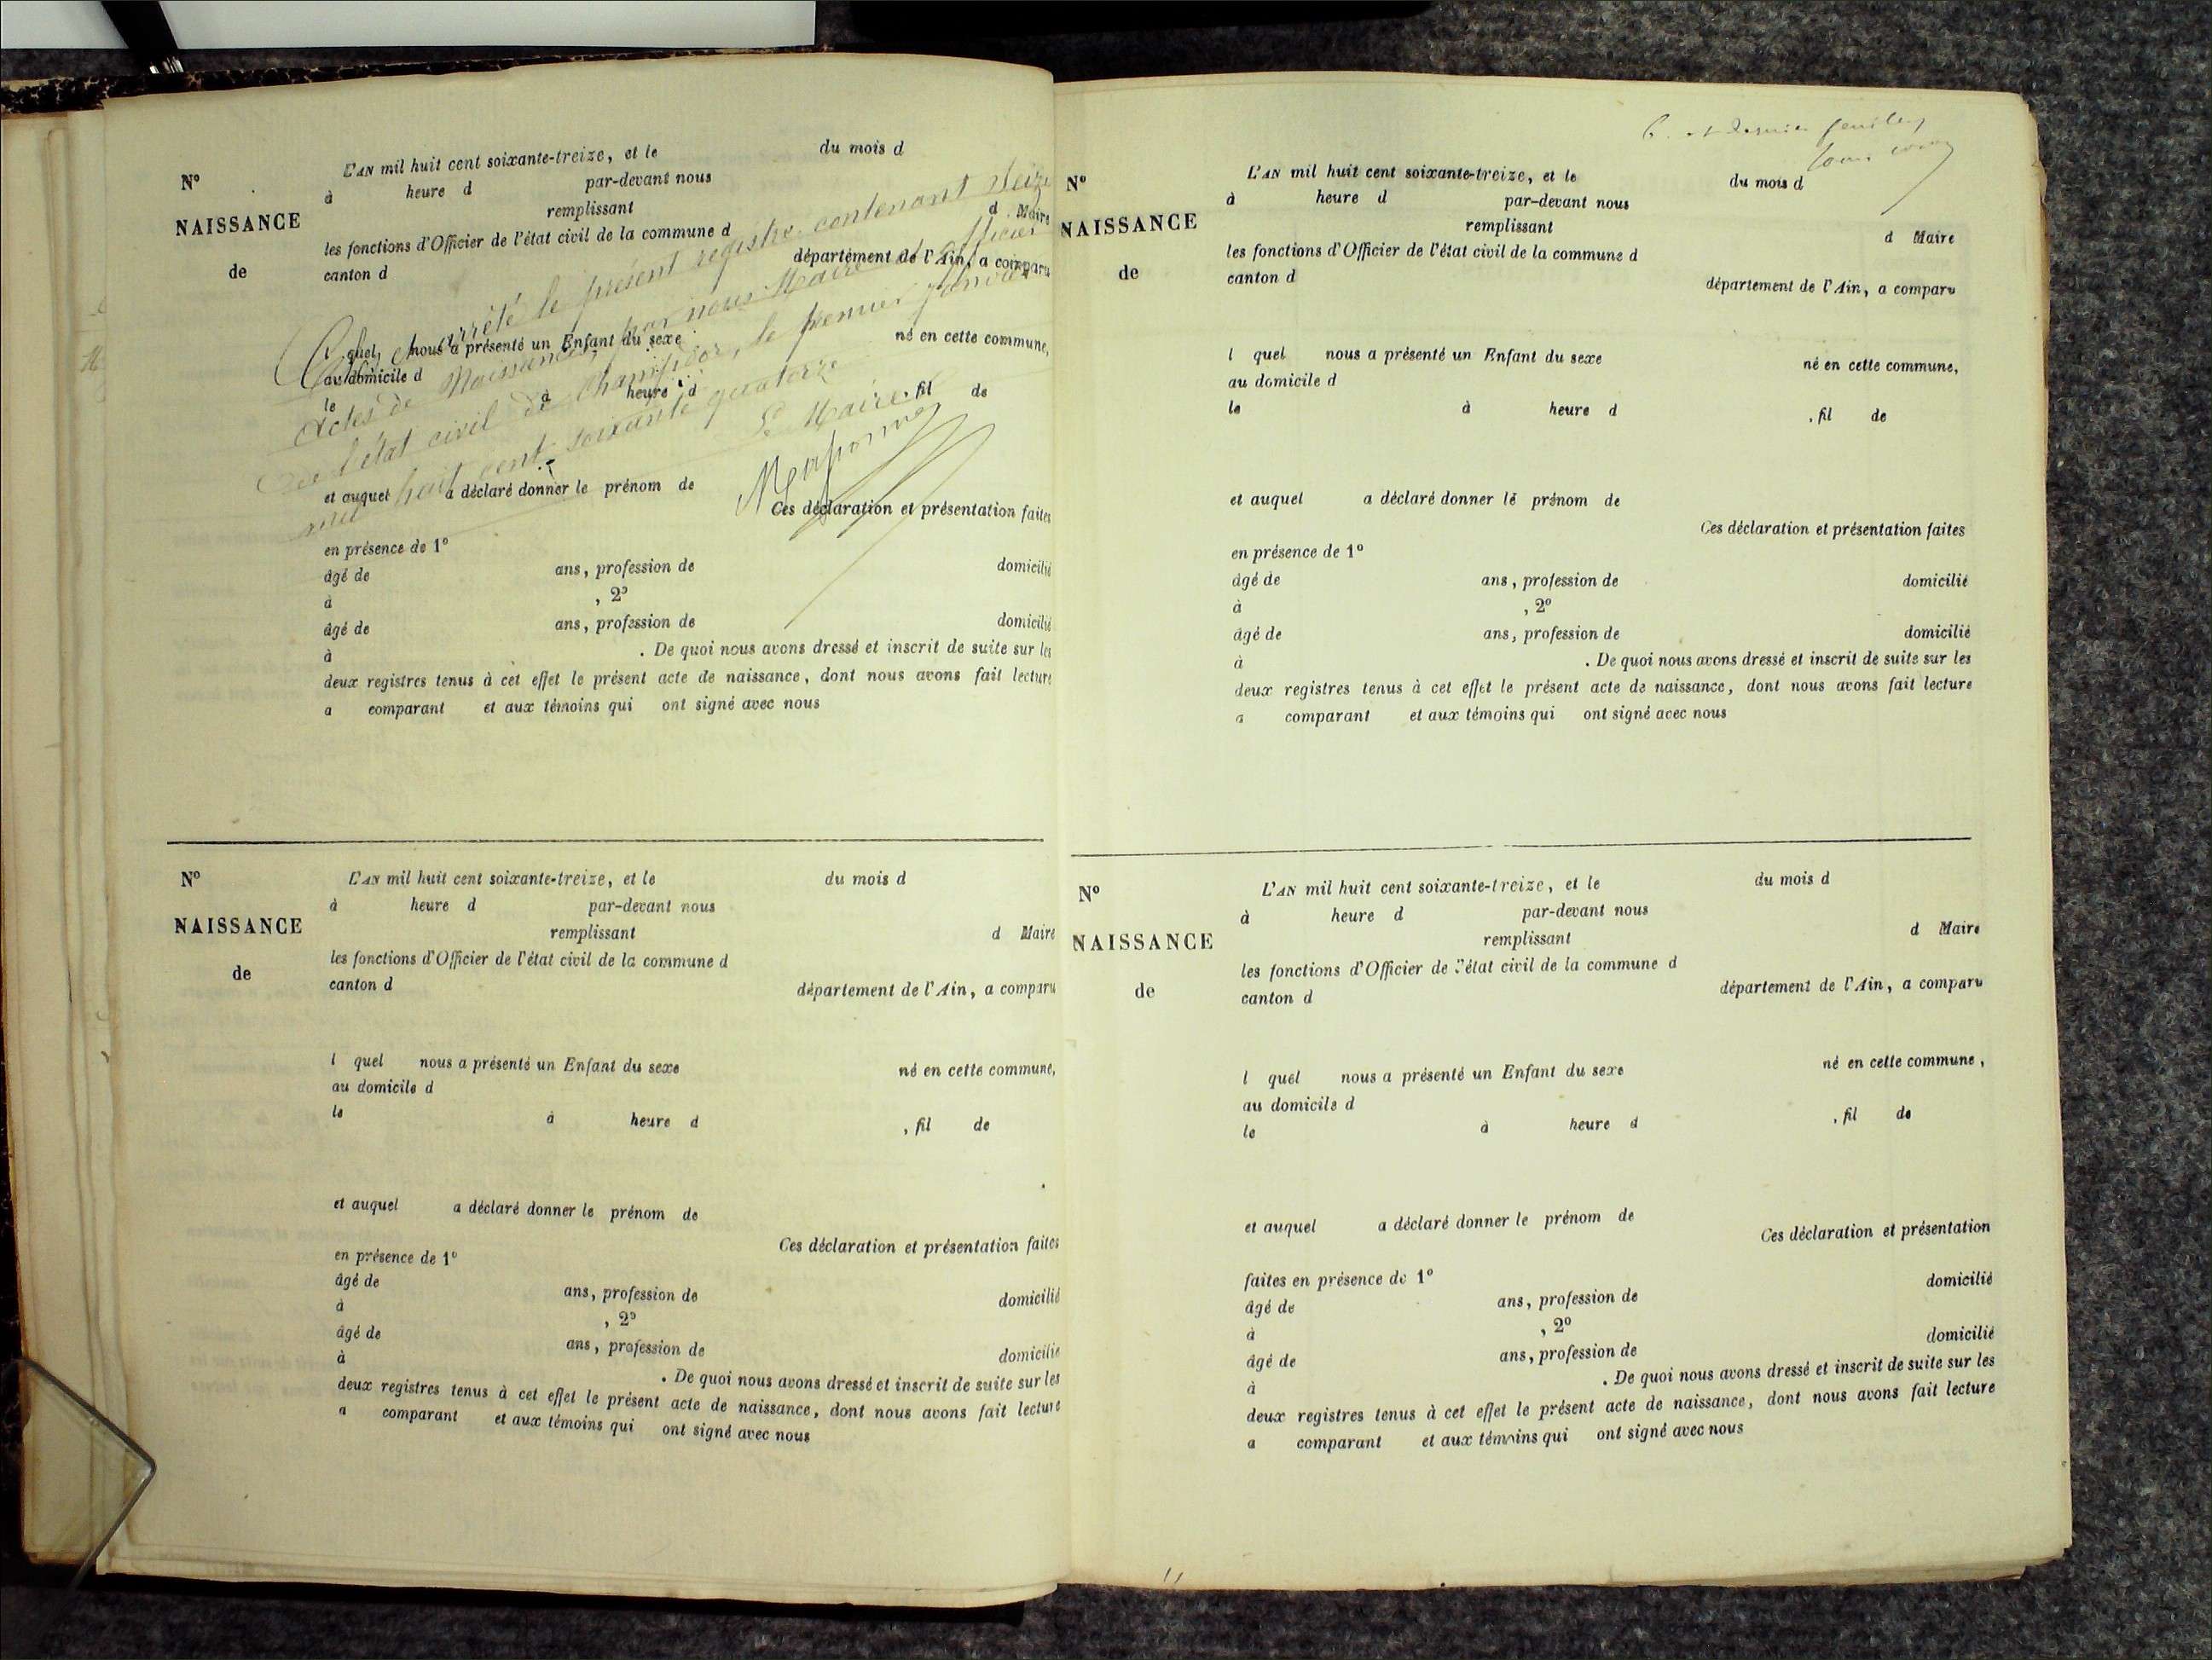 N°
NAISSANCE
de
L'AN mil huit cent soixante-treize, et le du mois d
à heure d par-devant nous
remplissant d Maire
les fonctions d'Officier de l'état civil de la commune d
canton d département de l'Ain, a comparu
l quel nous a présenté un Enfant du sexe né en cette commune,
au domicile d
le à heure d , fil de
et auquel a déclaré donner le prénom de
Ces déclaration et présentation faites
en présence de 1°
âgé de ans, profession de domicilié
à , 2°
âgé de ans, profession de domicilié
à . De quoi nous avons dressé et inscrit de suite sur les
deux registres tenus à cet effet le présent acte de naissance, dont nous avons fait lecture
a comparant et aux témoins qui ont signé avec nous
arrêté le présent registre contenant seize
actes de Naissances par nous Maire et officier
de l'état civil de Champdor, le premier Janvier
mil huit cent soixante quatorze
Le Maire
N°
NAISSANCE
de
L'AN mil huit cent soixante-treize, et le du mois d
à heure d par-devant nous
remplissant d Maire
les fonctions d'Officier de l'état civil de la commune d
canton d département de l'Ain, a comparu
l quel nous a présenté un Enfant du sexe né en cette commune,
au domicile d
le à heure d , fil de
et auquel a déclaré donner le prénom de
Ces déclaration et présentation faites
en présence de 1°
âgé de ans, profession de domicilié
à , 2°
âgé de ans, profession de domicilié
à . De quoi nous avons dressé et inscrit de suite sur les
deux registres tenus à cet effet le présent acte de naissance, dont nous avons fait lecture
a comparant et aux témoins qui ont signé avec nous
et dernier feuillet
N°
NAISSANCE
de
L'AN mil huit cent soixante-treize, et le du mois d
à heure d par-devant nous
remplissant d Maire
les fonctions d'Officier de l'état civil de la commune d
canton d département de l'Ain, a comparu
l quel nous a présenté un Enfant du sexe né en cette commune,
au domicile d
le à heure d , fil de
et auquel a déclaré donner le prénom de
Ces déclaration et présentation faites
en présence de 1°
âgé de ans, profession de domicilié
à , 2°
âgé de ans, profession de domicilié
à . De quoi nous avons dressé et inscrit de suite sur les
deux registres tenus à cet effet le présent acte de naissance, dont nous avons fait lecture
a comparant et aux témoins qui ont signé avec nous
N°
NAISSANCE
de
L'AN mil huit cent soixante-treize, et le du mois d
à heure d par-devant nous
remplissant d Maire
les fonctions d'Officier de l'état civil de la commune d
canton d département de l'Ain, a comparu
l quel nous a présenté un Enfant du sexe né en cette commune,
au domicile d
le à heure d , fil de
et auquel a déclaré donner le prénom de
Ces déclaration et présentation
faites en présence de 1°
âgé de ans, profession de domicilié
à , 2°
âgé de ans, profession de domicilié
à . De quoi nous avons dressé et inscrit de suite sur les
deux registres tenus à cet effet le présent acte de naissance, dont nous avons fait lecture
a comparant et aux témoins qui ont signé avec nous